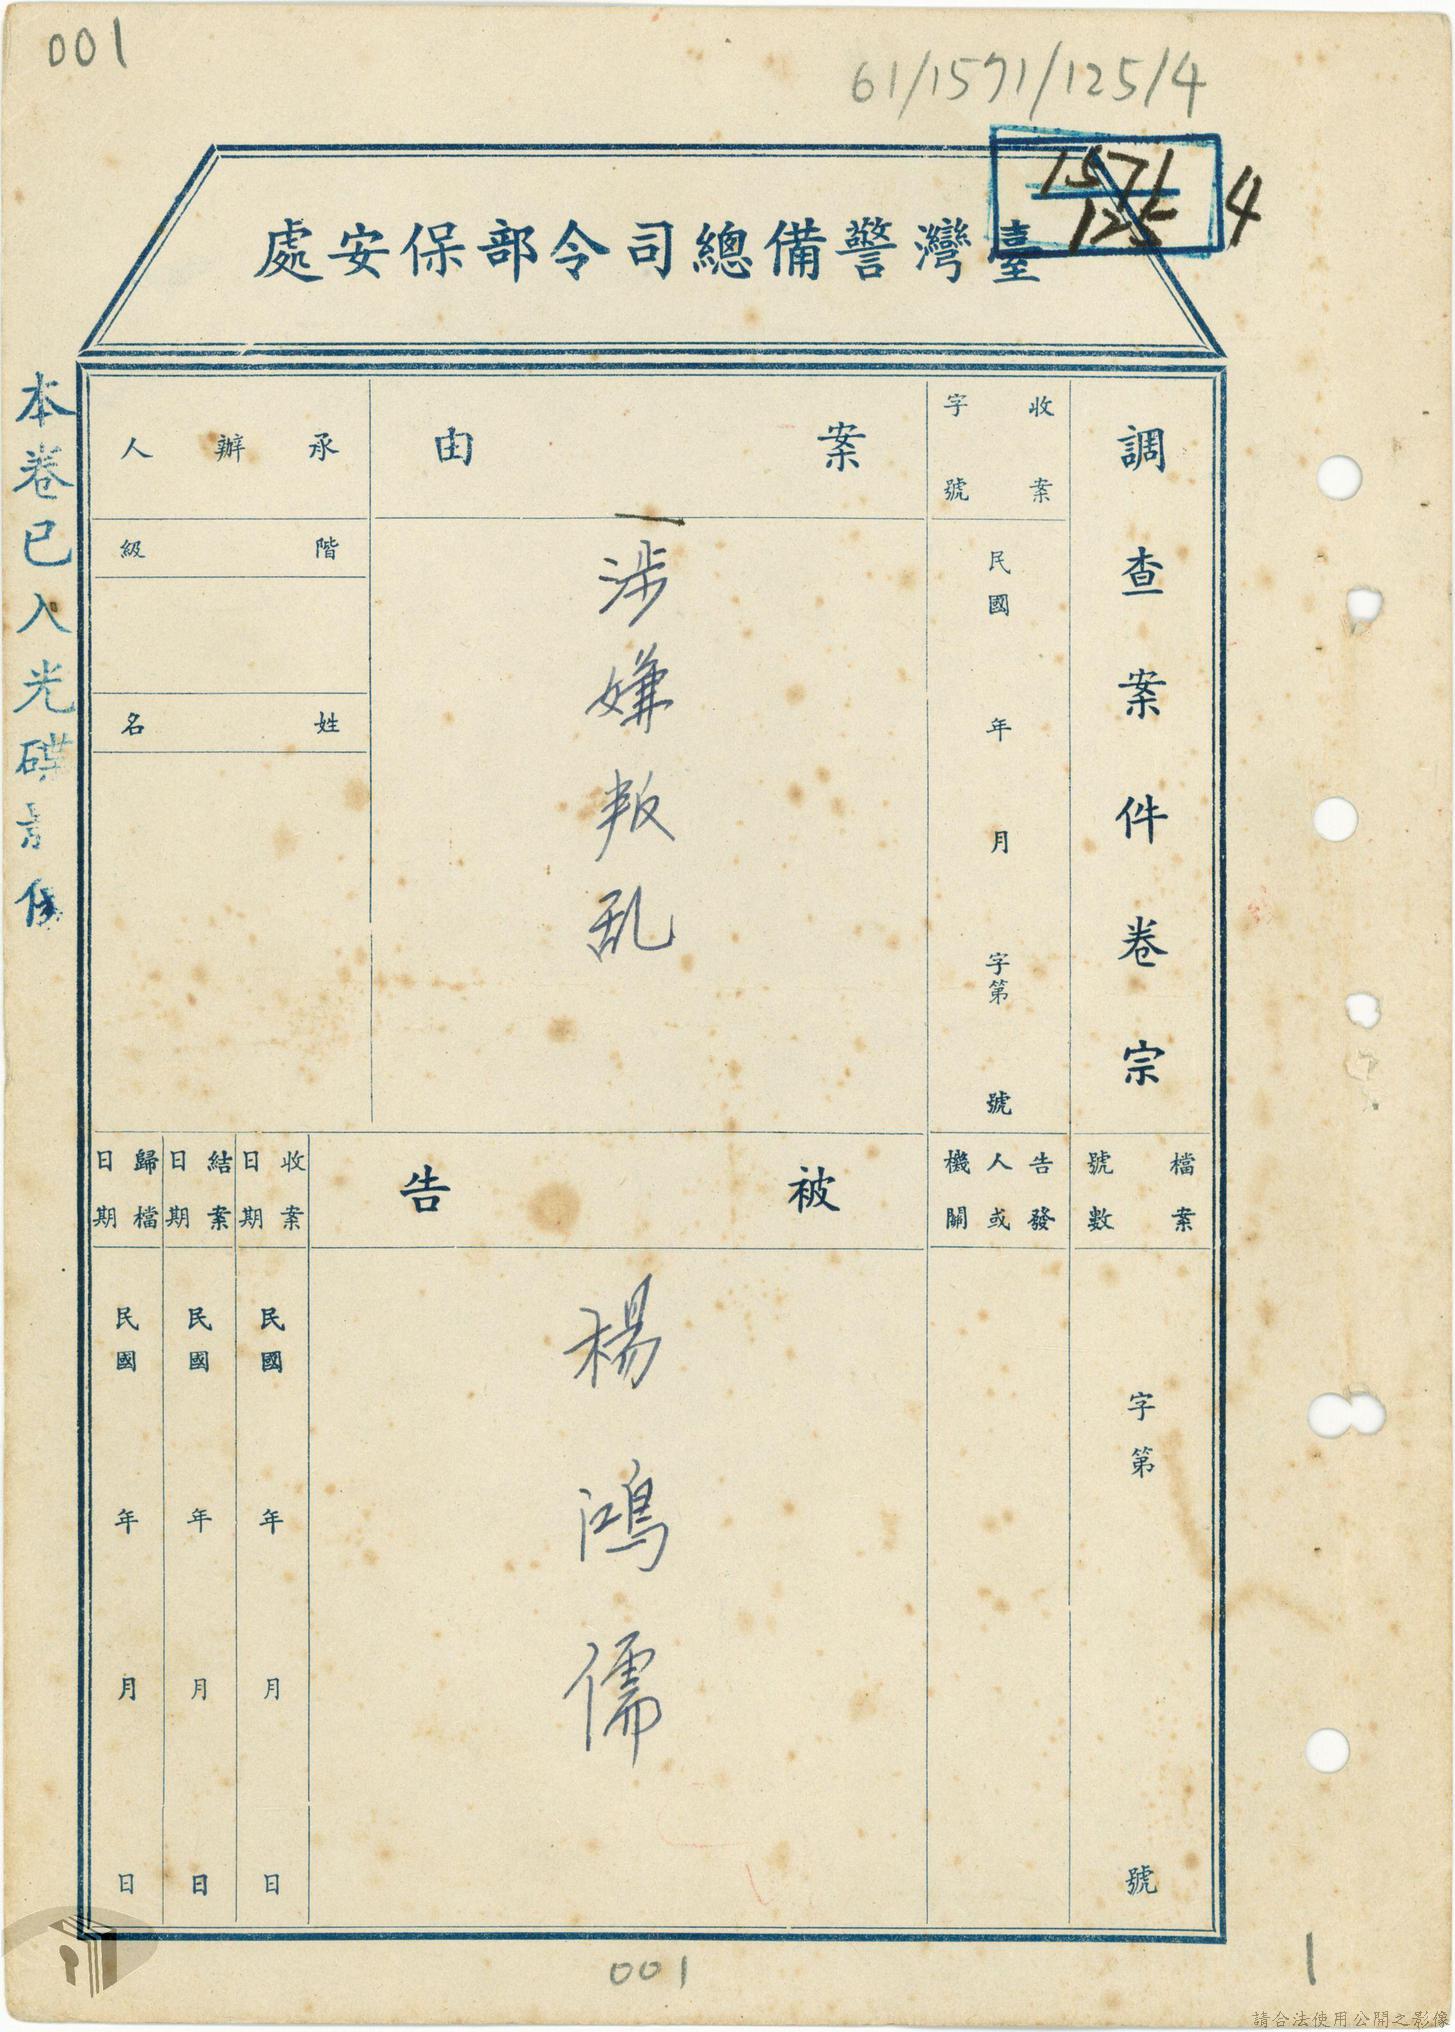 001
61/1571/125/4
1571
125
4
臺灣警備總司令部保安處
調查案件卷宗
收案字號
民國 年 月 字第 號
案由
涉嫌叛乱
承辦人
階級
姓名
檔案號數
字第 號
告發人或機關
被告
楊鴻儒
收案日期
民國 年 月 日
結案日期
民國 年 月 日
歸檔日期
民國 年 月 日
本卷已入光碟
001
1
請合法使用公開之影像